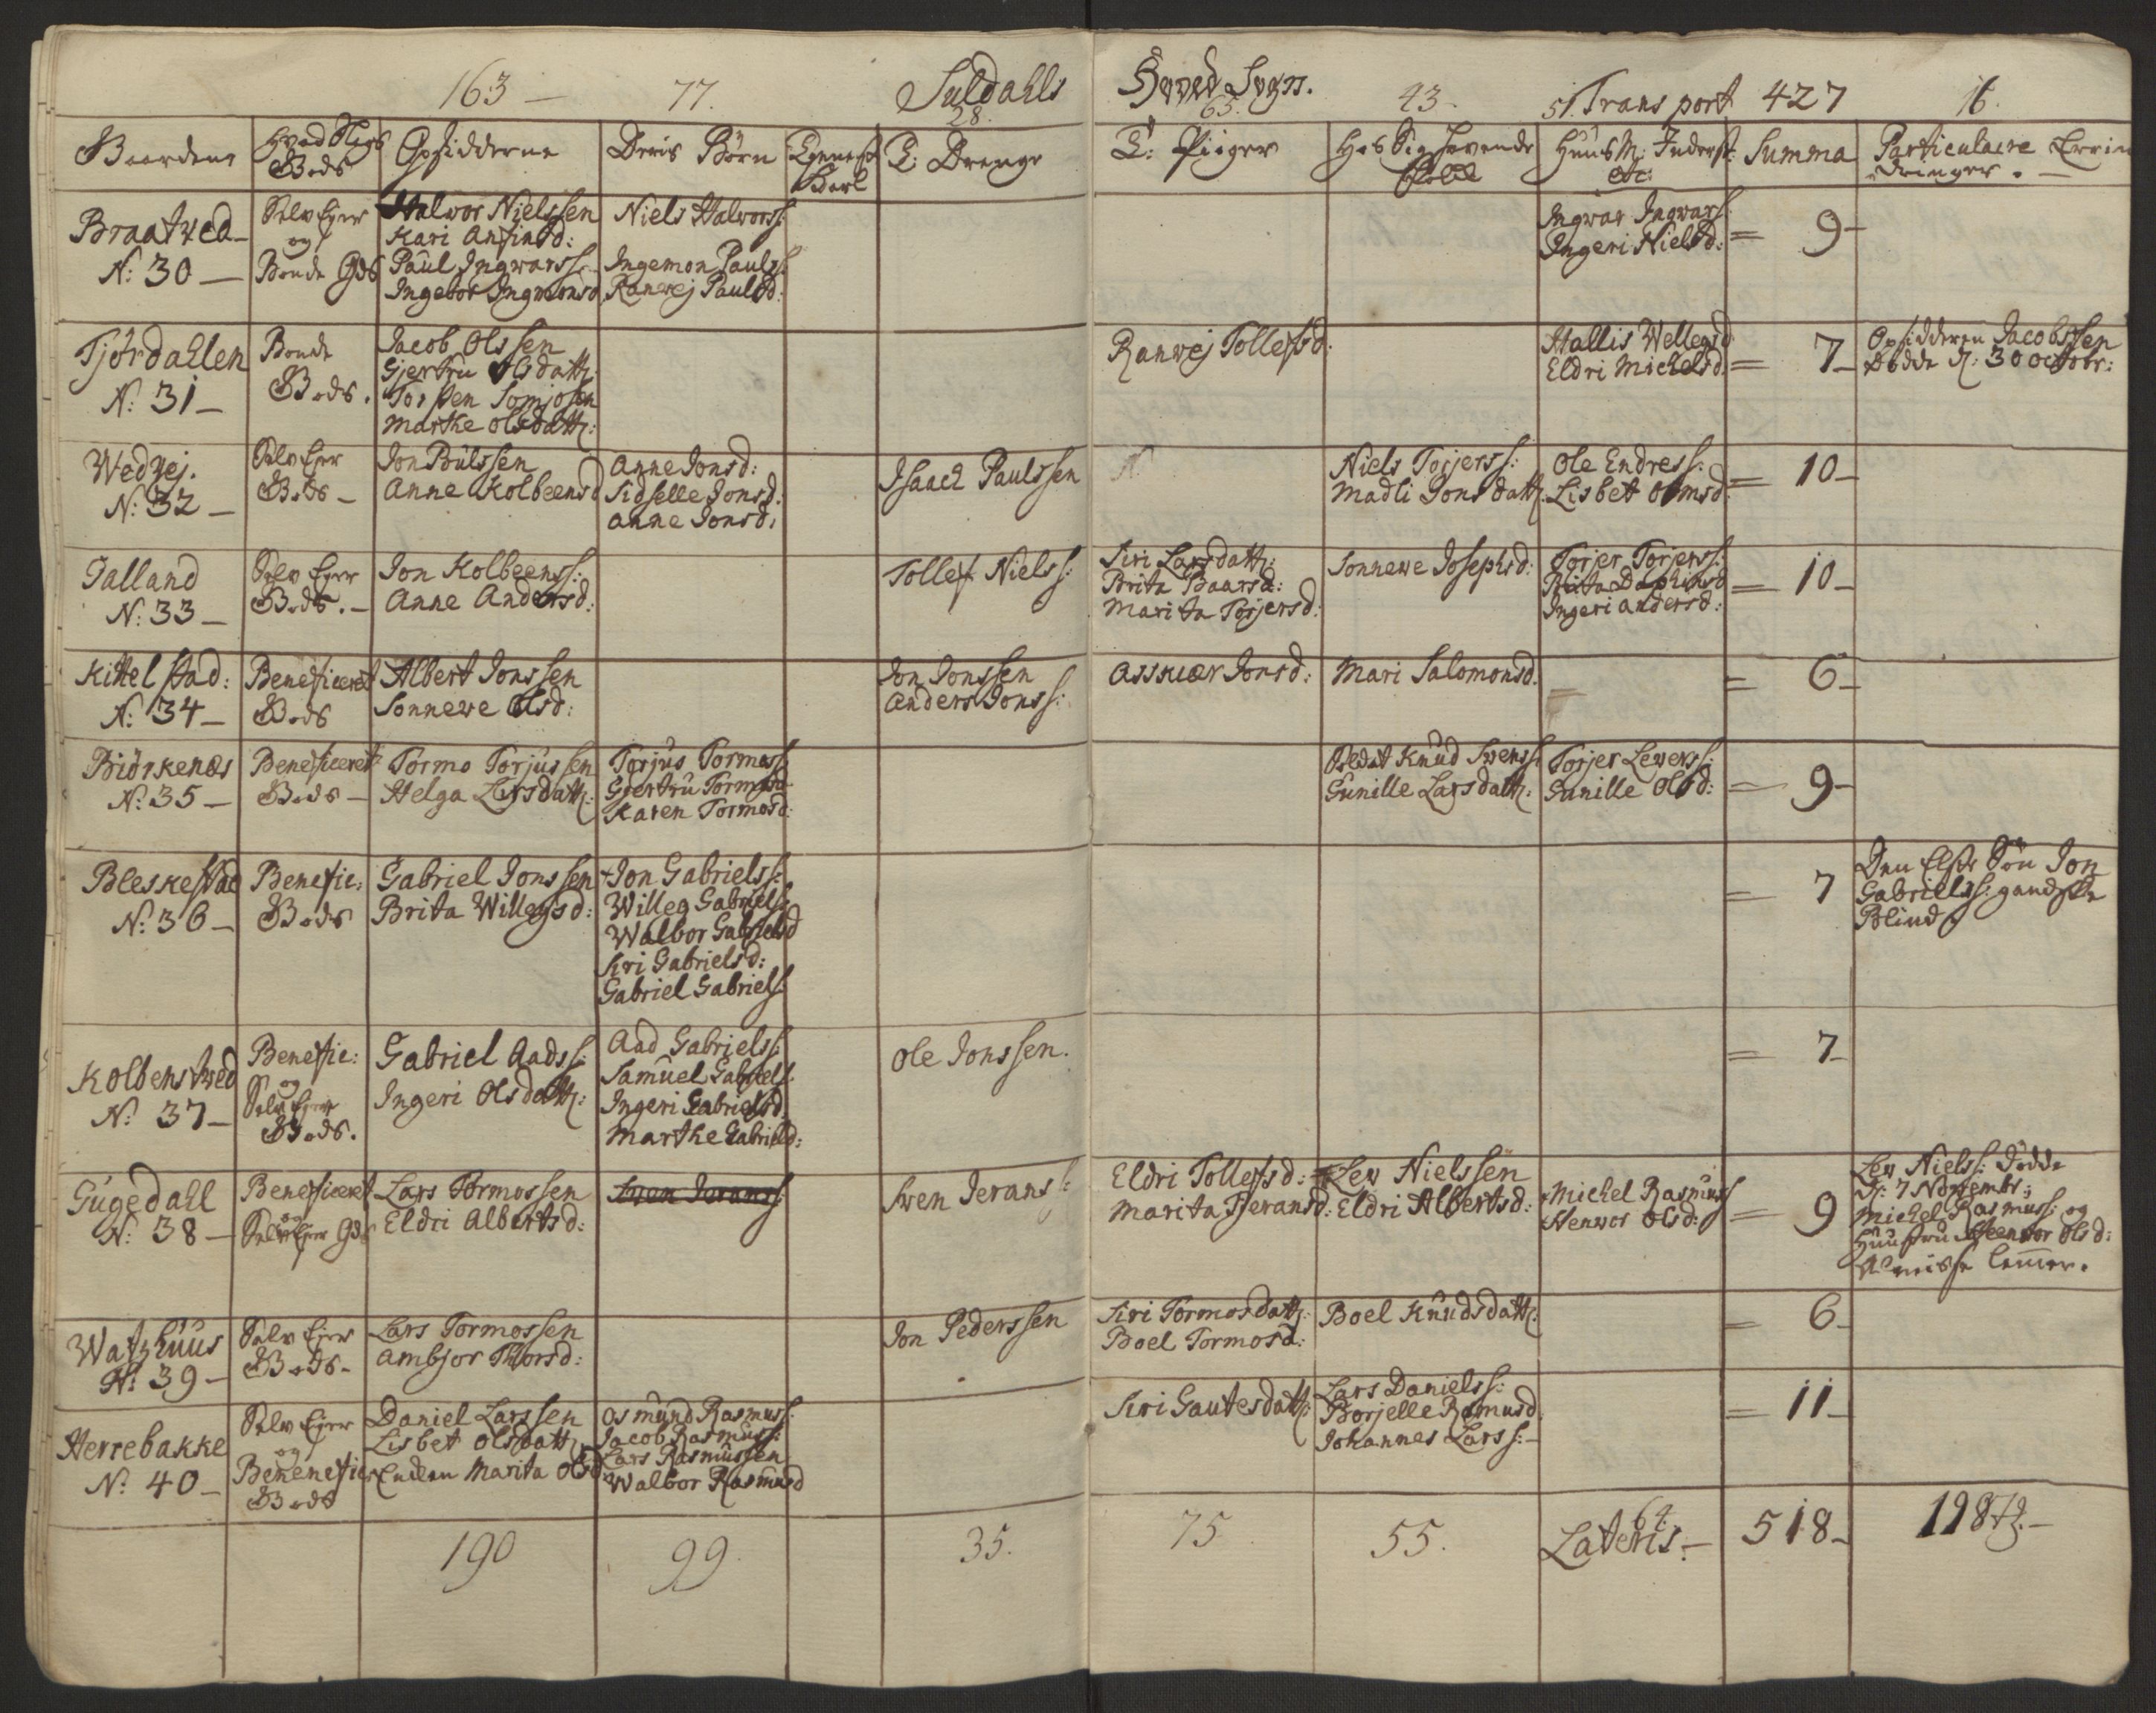 163 — 77. Suldahls Hoved Sogn. 43 51. Transport 427 16.
28. 65.
Gaardene Opsidderne Deris Børn E: Drenge E: Piiger Hos Sig havende Huus M: Inderst: Summa Particulaire Errin
Gods Karl Folck etc: dringer. —
Braatved — N: 30 —
Selv Eyer og Bonde Gods
Halvor Nielssen
Kari Anfinsd:
Paul Ingwarss:
Ingebor Ingwarsd
Niels Halvorss:
Ingemon Paulss:
Ranvej Paulsd:
Ingwar Ingwarss:
Ingeri Nielsd:
= 9 —
Tjørdahlen
N: 31 —
Bonde
Gods.
Jacob Olssen
Gjertru Olsdattr:
Torsten Tomjosen
Marthe Olsdattr:
Ranvej Tollefsd:
Hallis Wellegsd
Eldri Michelsd
= 7 —
Opsidderen Jacob Olssen
døde d: 30 Octobr:
Wedvej.
N: 32 —
Selv Eyer
Gods —
Jon Bülssen
Anne Kolbeensd
Anne Jonsd:
Sidselle Jonsd:
Anne Jonsd:
Isaach Paulssen
Niels Torjerss:
Madli Jonsdattr:
Ole Endress:
Lisbet Ormsd:
= 10 —
Jalland
N: 33 —
Selv Eyer
Gods. —
Jon Kolbeenss:
Anne Andersd:
Tollef Nielss:
Siri Larsdattr:
Brita Baarsd:
Marita Torjersd:
Sonnewe Josephsd:
Torjer Torjerss:
Brita Daphinsd
Ingeri Andersd:
= 10 —
Kittelstad:
N: 34 —
Beneficeret
Gods
Albert Jonssen
Sonnewe Olsd:
Jon Jonssen
Anders Jonss:
Asskuær Jonsd:
Mari Salomonsd.
= 6 —
Biörkenæs
N: 35 —
Beneficeret
Gods —
Tormo Torjussen
Helga Larsdattr:
Torjus Tormoss:
Gjertru Tormosd
Karen Tormosd:
Soldat Knud Swenss:
Gunille Larsdattr:
Torjer Lewerss:
Gunille Olsd:
= 9 —
Bleskestad
N: 36 —
Benefic:
Gods
Gabriel Jonssen
Brita Willegsd:
+Jon Gabrielss:
Willeg Gabrielss:
Walbor Gabrielsd
Siri Gabrielsd:
Gabriel Gabriels:
= 7
Den Elste Søn Jon
Gabrielss: gandske
Blind
Kolbenstved
N: 37 —
Benefic:
og
Selv Eyer
Gods.
Gabriel Aadss:
Ingeri Olsdattr:
Aad Gabrielss:
Samuel Gabriels:
Ingeri Gabrielsd
Marthe Gabrielsd:
Ole Jonssen.
= 7 —
Gugedahl
N: 38 —
Beneficeret
og
Selv Eyer Gods
Lars Tormossen
Eldri Albertsd:
Swen Jeranss:
Swen Jeranss:
Eldri Tollefsd:
Marita Jeransd:
Lew Nielssen
Eldri Albertsd:
Michel Rasmuss
Henwor Olsd:
= 9
Lew Nielss: døde
d: 7 Novembr:
Michel Rasmuss: og
Huustru Heenvor Olsd:
Almisse Lemmer.
Watzhuus
N: 39 —
Selv Eyer
Gods —
Lars Tormossen
Ambjor Thorsd:
Jon Pederssen
Siri Tormosdattr:
Boel Tormosd:
Boel Knudsdattr:
= 6 —
Herrebakke
N: 40 —
Selv Eyer
og
Benenefic
Gods
Daniel Larssen
Lisbet Olsdattr:
Encken Marita Olsd:
Osmund Rasmuss:
Jacob Rasmuss:
Lars Rasmussen
Walbor Rasmusd
Siri Gautesdattr:
Lars Danielss:
Borjelle Rasmusd
Johannes Larss: —
= 11 —
190 99. 35. 75 55. 64. Lateris. — 518 —